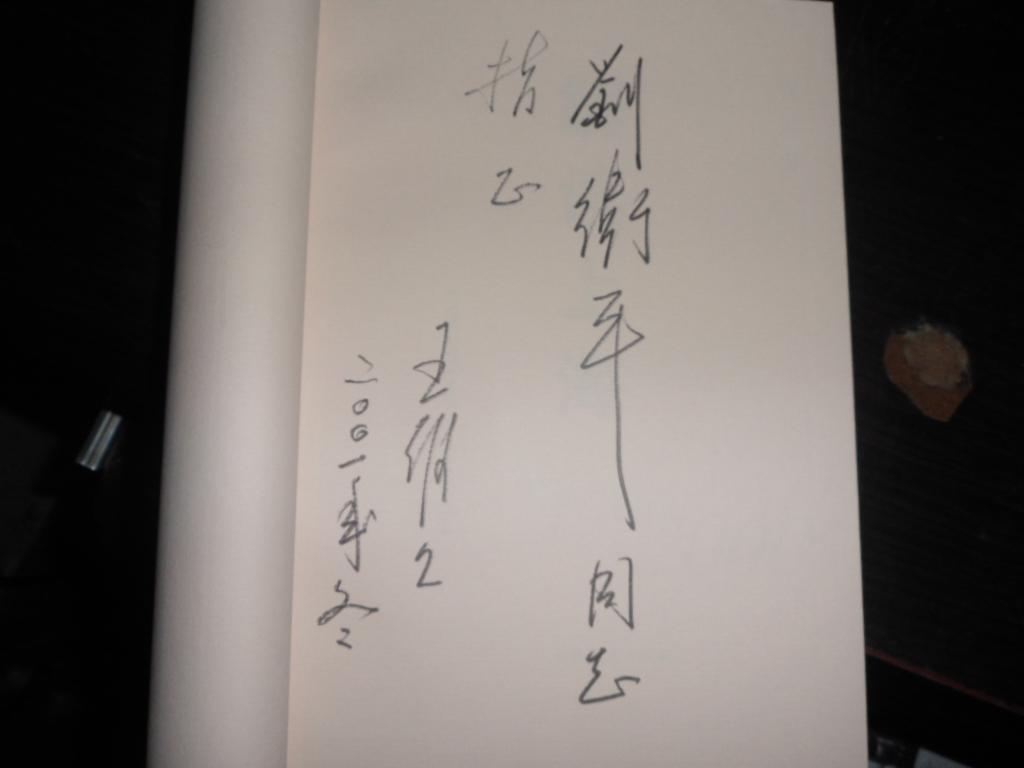 劉衛平同志
指正
王維
二〇〇一年冬